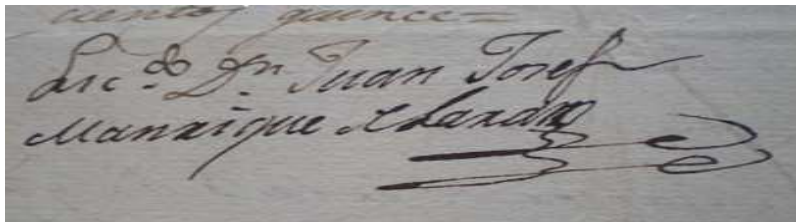 cientos quince=
Lic.do Dn. Juan Josef
Manrique de Lara